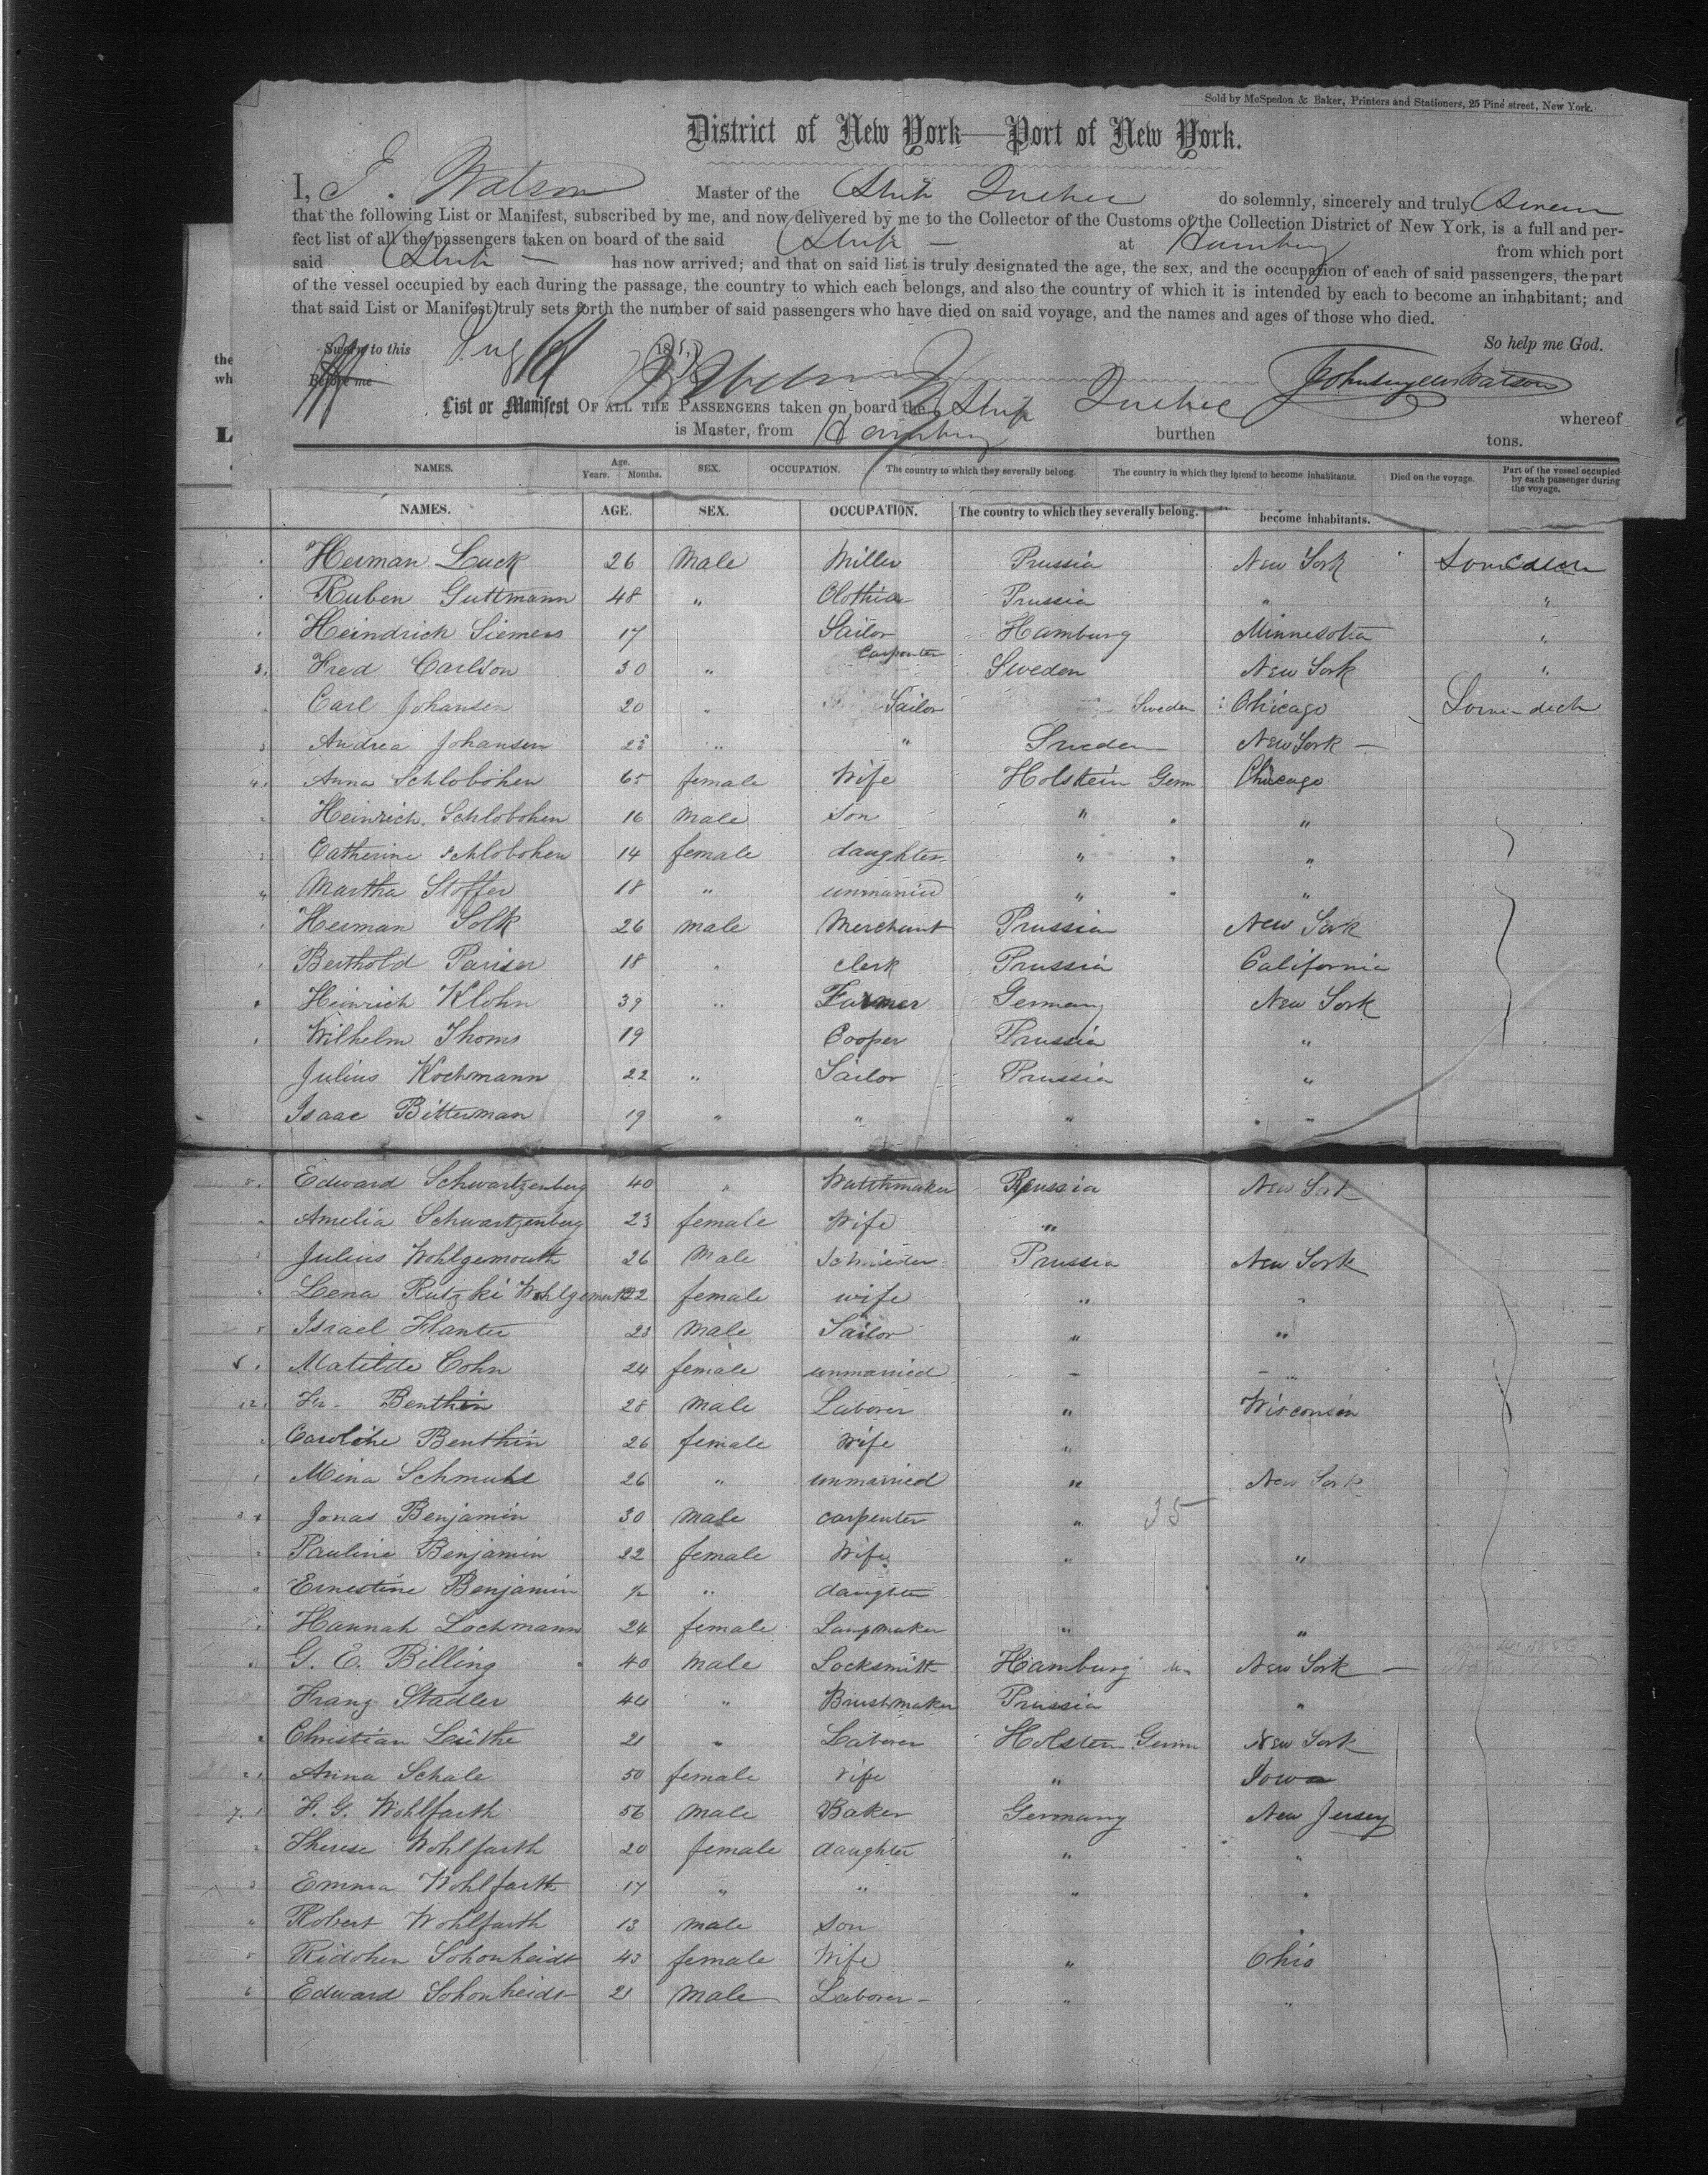 Sold by McSpedon & Baker, Printers and Stationers, 25 Pine street, New York.
District of New York—Port of New York.
I, J. Watson Master of the Ship Quebec do solemnly, sincerely and truly Swear
that the following List or Manifest, subscribed by me, and now delivered by me to the Collector of the Customs of the Collection District of New York, is a full and per-
fect list of all the passengers taken on board of the said Ship — at Hamburg from which port
said Ship — has now arrived; and that on said list is truly designated the age, the sex, and the occupation of each of said passengers, the part
of the vessel occupied by each during the passage, the country to which each belongs, and also the country of which it is intended by each to become an inhabitant; and
that said List or Manifest truly sets forth the number of said passengers who have died on said voyage, and the names and ages of those who died.
So help me God.
Sworn to this Aug 185
Before me
List or Manifest OF ALL THE PASSENGERS taken on board the Ship Quebec whereof
is Master, from Hamburg burthen tons.
NAMES. Age. Years. Months. SEX. OCCUPATION. The country to which they severally belong. The country in which they intend to become inhabitants. Died on the voyage. Part of the vessel occupied by each passenger during the voyage.
NAMES. AGE. SEX. OCCUPATION. The country to which they severally belong. become inhabitants.
Herman Luck 26 Male Miller Prussia New York
Ruben Guttmann 48 " Prussia " "
Heindrich Siemers 17 Sailor Hamburg Minnesota "
Fred Carlson 30 " Carpenter Sweden New York "
Carl Johansen 20 " Sailor Sweden Chicago
Andrea Johansen " " Sweden New York —
Anna Schlobohen 65 female Wife Holstein Germ Chicago
Heinrich Schlobohen 16 Male Son " " "
Catherine Schlobohen 14 female daughter " " "
Martha Stoffer 18 " unmarried " " "
Herman Solk 26 male Merchant Prussia New York
Berthold Pariser 18 " clerk Prussia California
Heinrich Klohn 39 " Farmer Germany New York
Wilhelm Thoms 19 Cooper Prussia "
Julius Kochmann 22 " Sailor Prussia "
Isaac Bitterman 19 " " " "
Edward Schwartzenberg 40 " Watchmaker New York
Amelia Schwartzenberg 23 female Wife "
Julius Wohlgemouth 26 Male Prussia New York
Lena Rutzki Wohlgemuth 22 female wife " "
Israel 23 Male Sailor " "
Matilde Cohn 24 female unmarried " "
Fr. Benthin 28 Male Laborer " Wisconsin
Caroline Benthin 26 female Wife "
Mina 26 " unmarried " New York
Jonas Benjamin 30 Male carpenter " 35
Pauline Benjamin 22 female Wife " "
Ernestine Benjamin ½ " daughter
Hannah Lochmann 24 female " "
G. E. Billing 40 Male Locksmith Hamburg New York —
Franz Stadler 44 " Brushmaker Prussia "
Christian Lüthe 21 " Laborer Holstein Germ New York
Anna Schale 50 female Wife " Iowa
F. G. Wohlfarth 56 Male Baker Germany New Jersey
Therese Wohlfarth 20 female daughter " "
Emma Wohlfarth 17 " " " "
Robert Wohlfarth 13 male son "
Schonheidt 43 female Wife " Ohio
Edward Schonheidt 21 Male Laborer " "